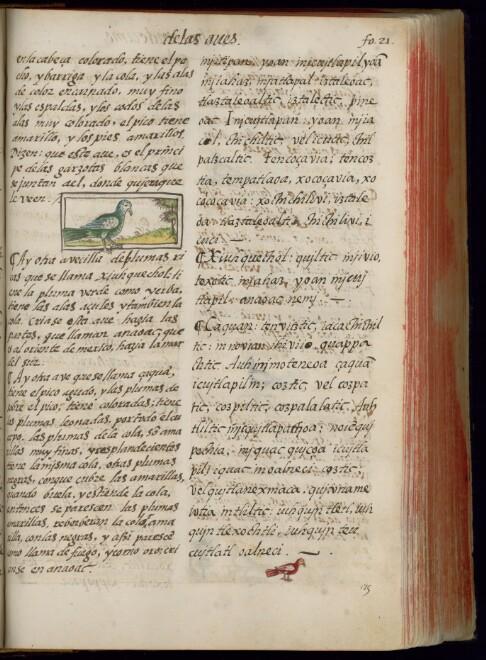 de las aues.
fo. 21.
en la cabeça colorado, tiene el pe
cho, y barriga y la cola, y las alas
de color encarnado, muy fino
y las espaldas, y los codos de las
alas muy colorado, el pico tiene
amarillo, y los pies, amarillos.
Dizen: que esta aue, es el princi
pe de las garzotas blancas que
se juntan a el, donde quiera que
le veen.
¶ Ay otra avecilla de plumas ri
cas que se llama Xiuhquechol: ti
ene la pluma verde como yerba,
tiene las alas açules y tambien la
cola. Criase esta aue hazia las
partes, que llaman anaoac, que
es al oriente de mexico, hazia la mar
del sur.
¶ Ay otra aue que se llama çaquã,
tiene el pico agudo, y las plumas de
sobre el pico, tiene coloradas: tiene
las plumas leonadas, por todo el cu
erpo, las plumas de la cola, so ama
rillas muy finas, y resplandecientes
tiene la misma cola, otras plumas
negras, con que cubre las amarillas,
quando buela, y estiende la cola,
entonces se parescen las plumas
amarillas, la cola ama
rilla, con las negras, y assi paresce
como llama de fuego, y como oro: cri
anse en anaoac.
yoan
iztaleoac,
tlaztaleoaltic, iztalectic, pine
oac. Imecuitlapan: yoan injia
col, chichiltic, vel icucic, chil
patzcaltic. Tencoçavia; tencoz
tia, tempatlaoa, xocoçavia, xo
cocoçavia: xochichilivi, iztale
oa, tlaztaleoalti, chichilivi, i
cuci. —
¶ Xiuhquechol: quiltic injivio,
texotic injahaz, yoan injcuj
tlapil: anaoac nemj. —
¶ Çaquan: tenvitztic, iacachichil
tic: in novian ihivio, quappa
chtic. Auh injmoteneoa çaquã
icujtlapilin; coztic, vel cozpa
tic, cozpiltic, cozpalalatic. Auh
tliltic injcujtlapathoa: noiecqui
pechia: injquac quiçoa icujtla
pil, iquac in oalneci coztic,
velquitlanexmaca. quiioiame
votia in tliltic: iuhqujn tletl, iuh
qujn tlexochtli, iuhqujn teu
cuitlatl oalneci. —